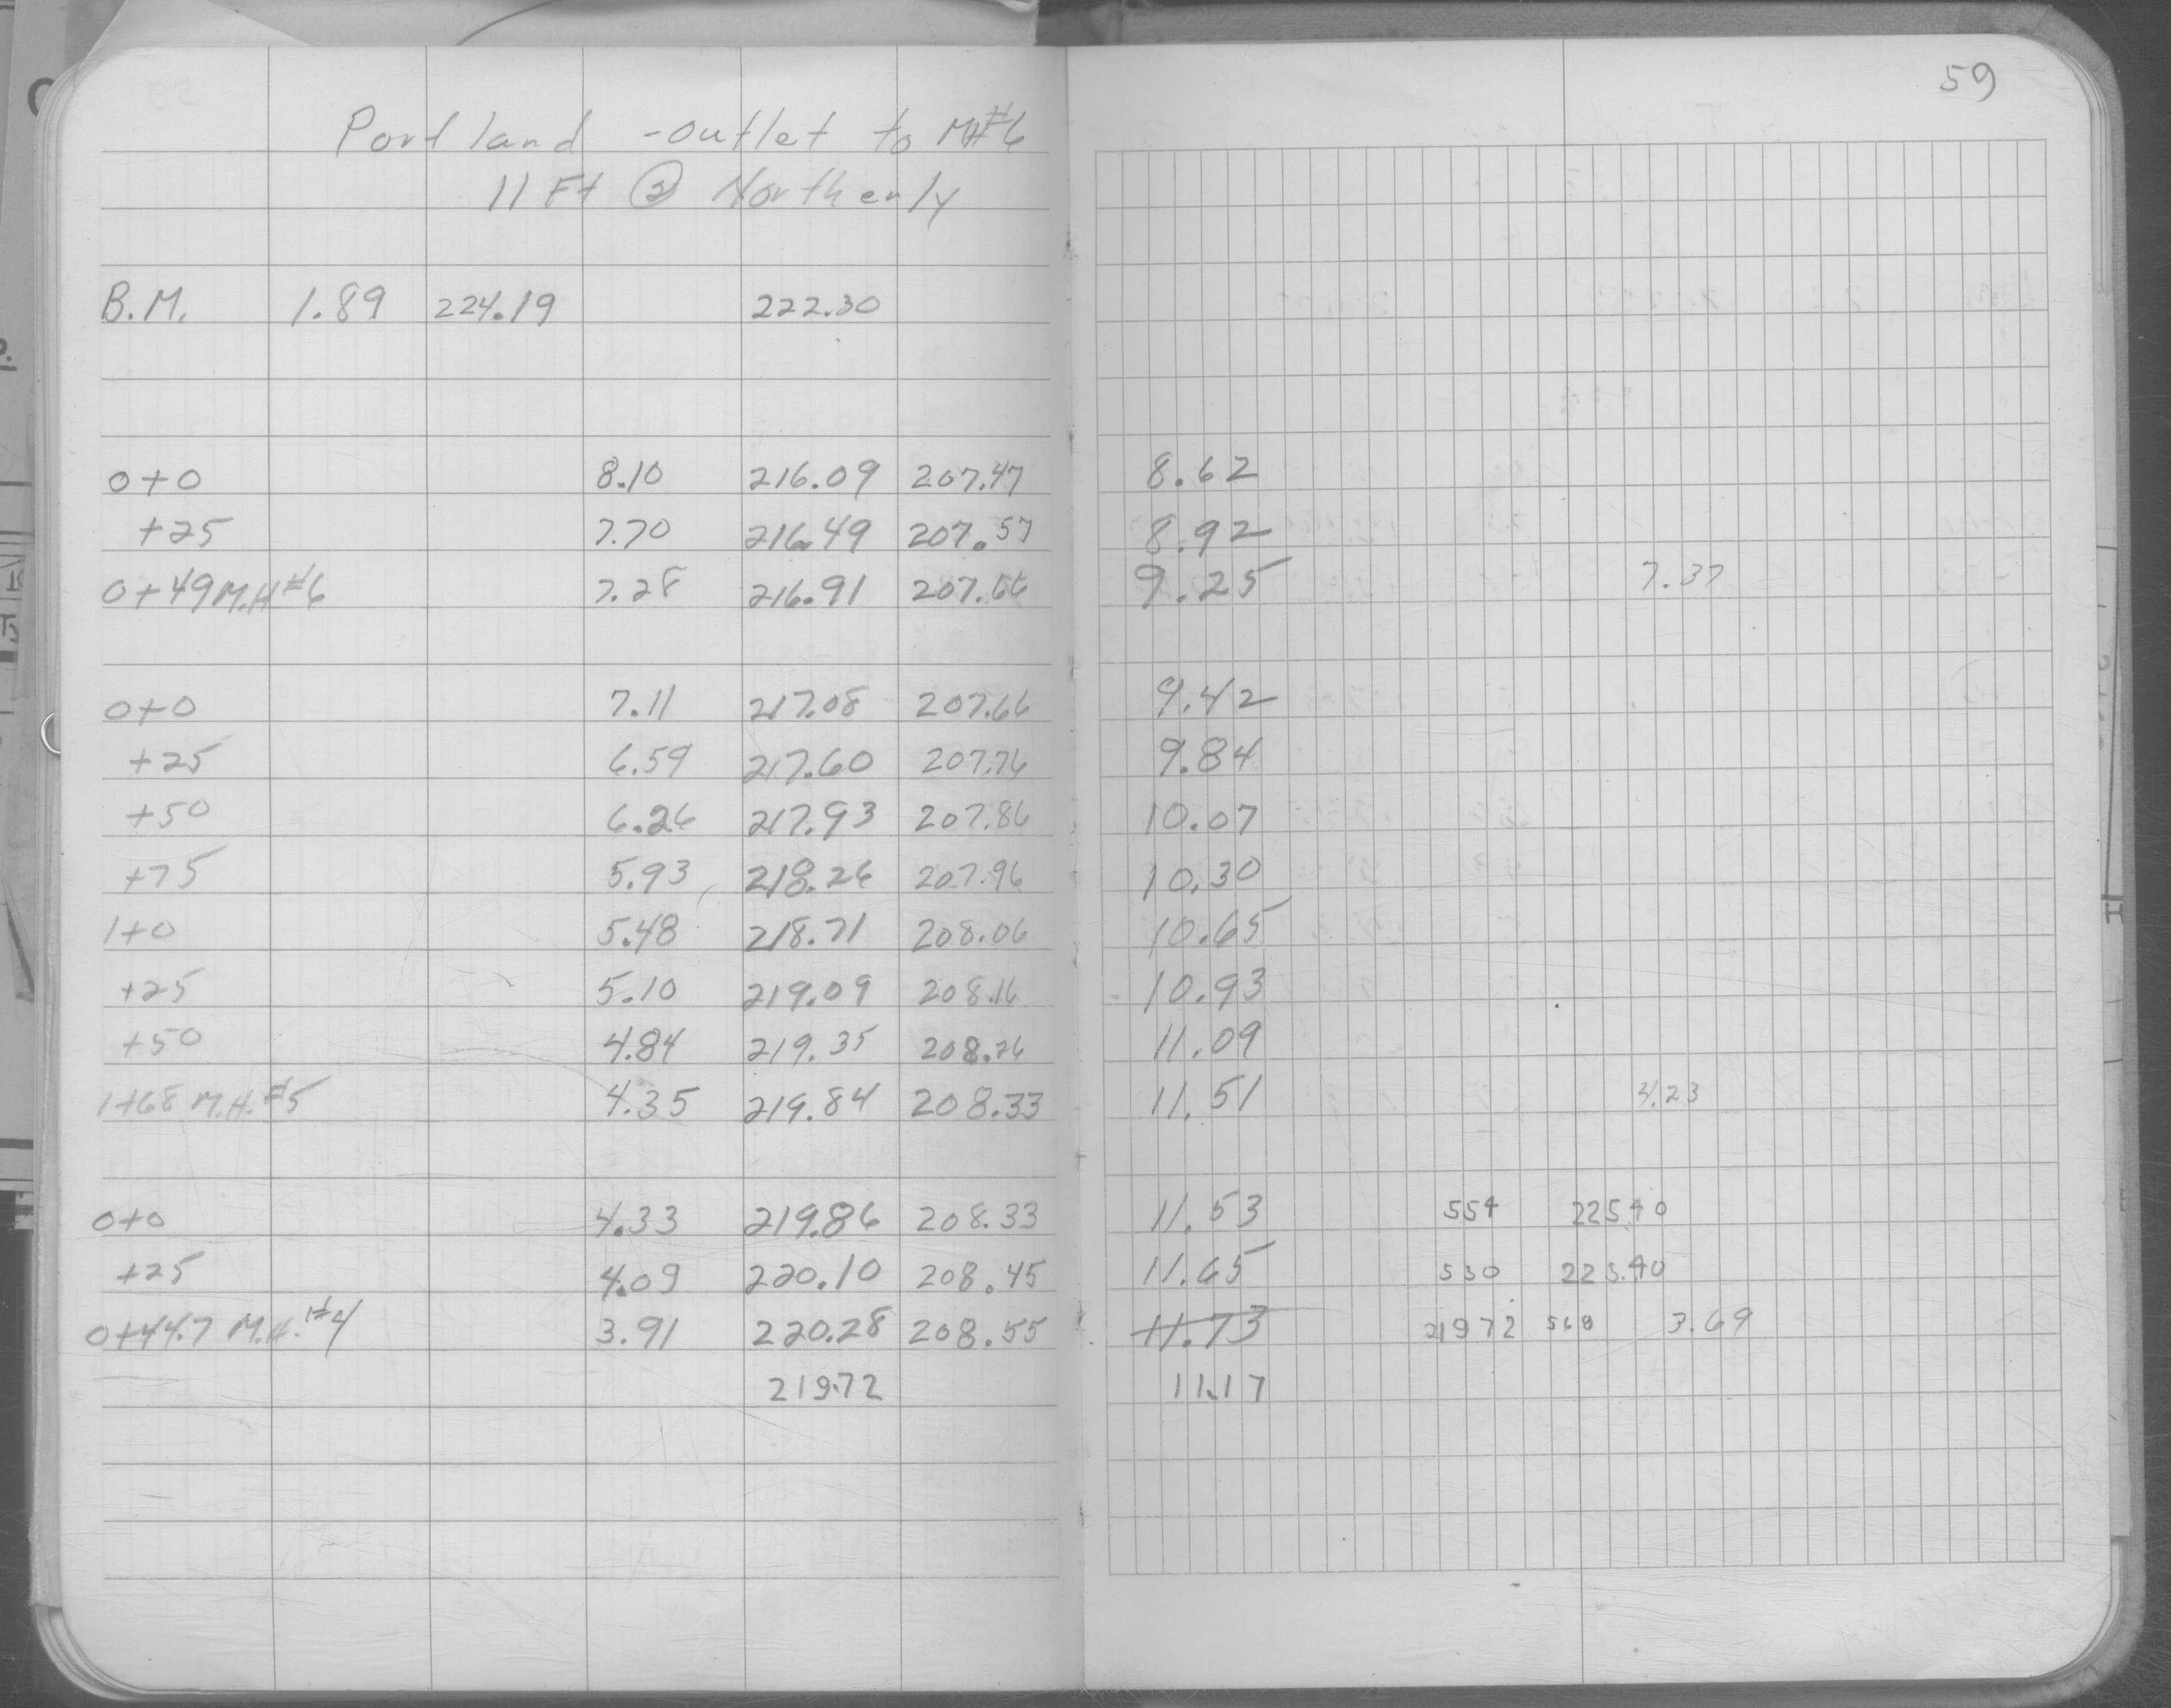 59
Portland - outlet to MH#6
11 Ft @ Northerly
B.M. 1.89 224.19 222.30
0+0 8.10 216.09 207.47 8.62
+25 7.70 216.49 207.57 8.92
0+49 M.H #6 7.28 216.91 207.66 9.25 7.37
0+0 7.11 217.08 207.66 9.42
+25 6.59 217.60 207.76 9.84
+50 6.26 217.93 207.86 10.07
+75 5.93 218.26 207.96 10.30
1+0 5.48 218.71 208.06 10.65
+25 5.10 219.09 208.16 10.93
+50 4.84 219.35 208.26 11.09
1+68 M.H. #5 4.35 219.84 208.33 11.51 4.23
0+0 4.33 219.86 208.33 11.53 554 225.40
+25 4.09 220.10 208.45 11.65 530 225.40
0+44.7 M.H. #4 3.91 220.28 208.55 11.73 21972 568 3.69
219.72 11.17